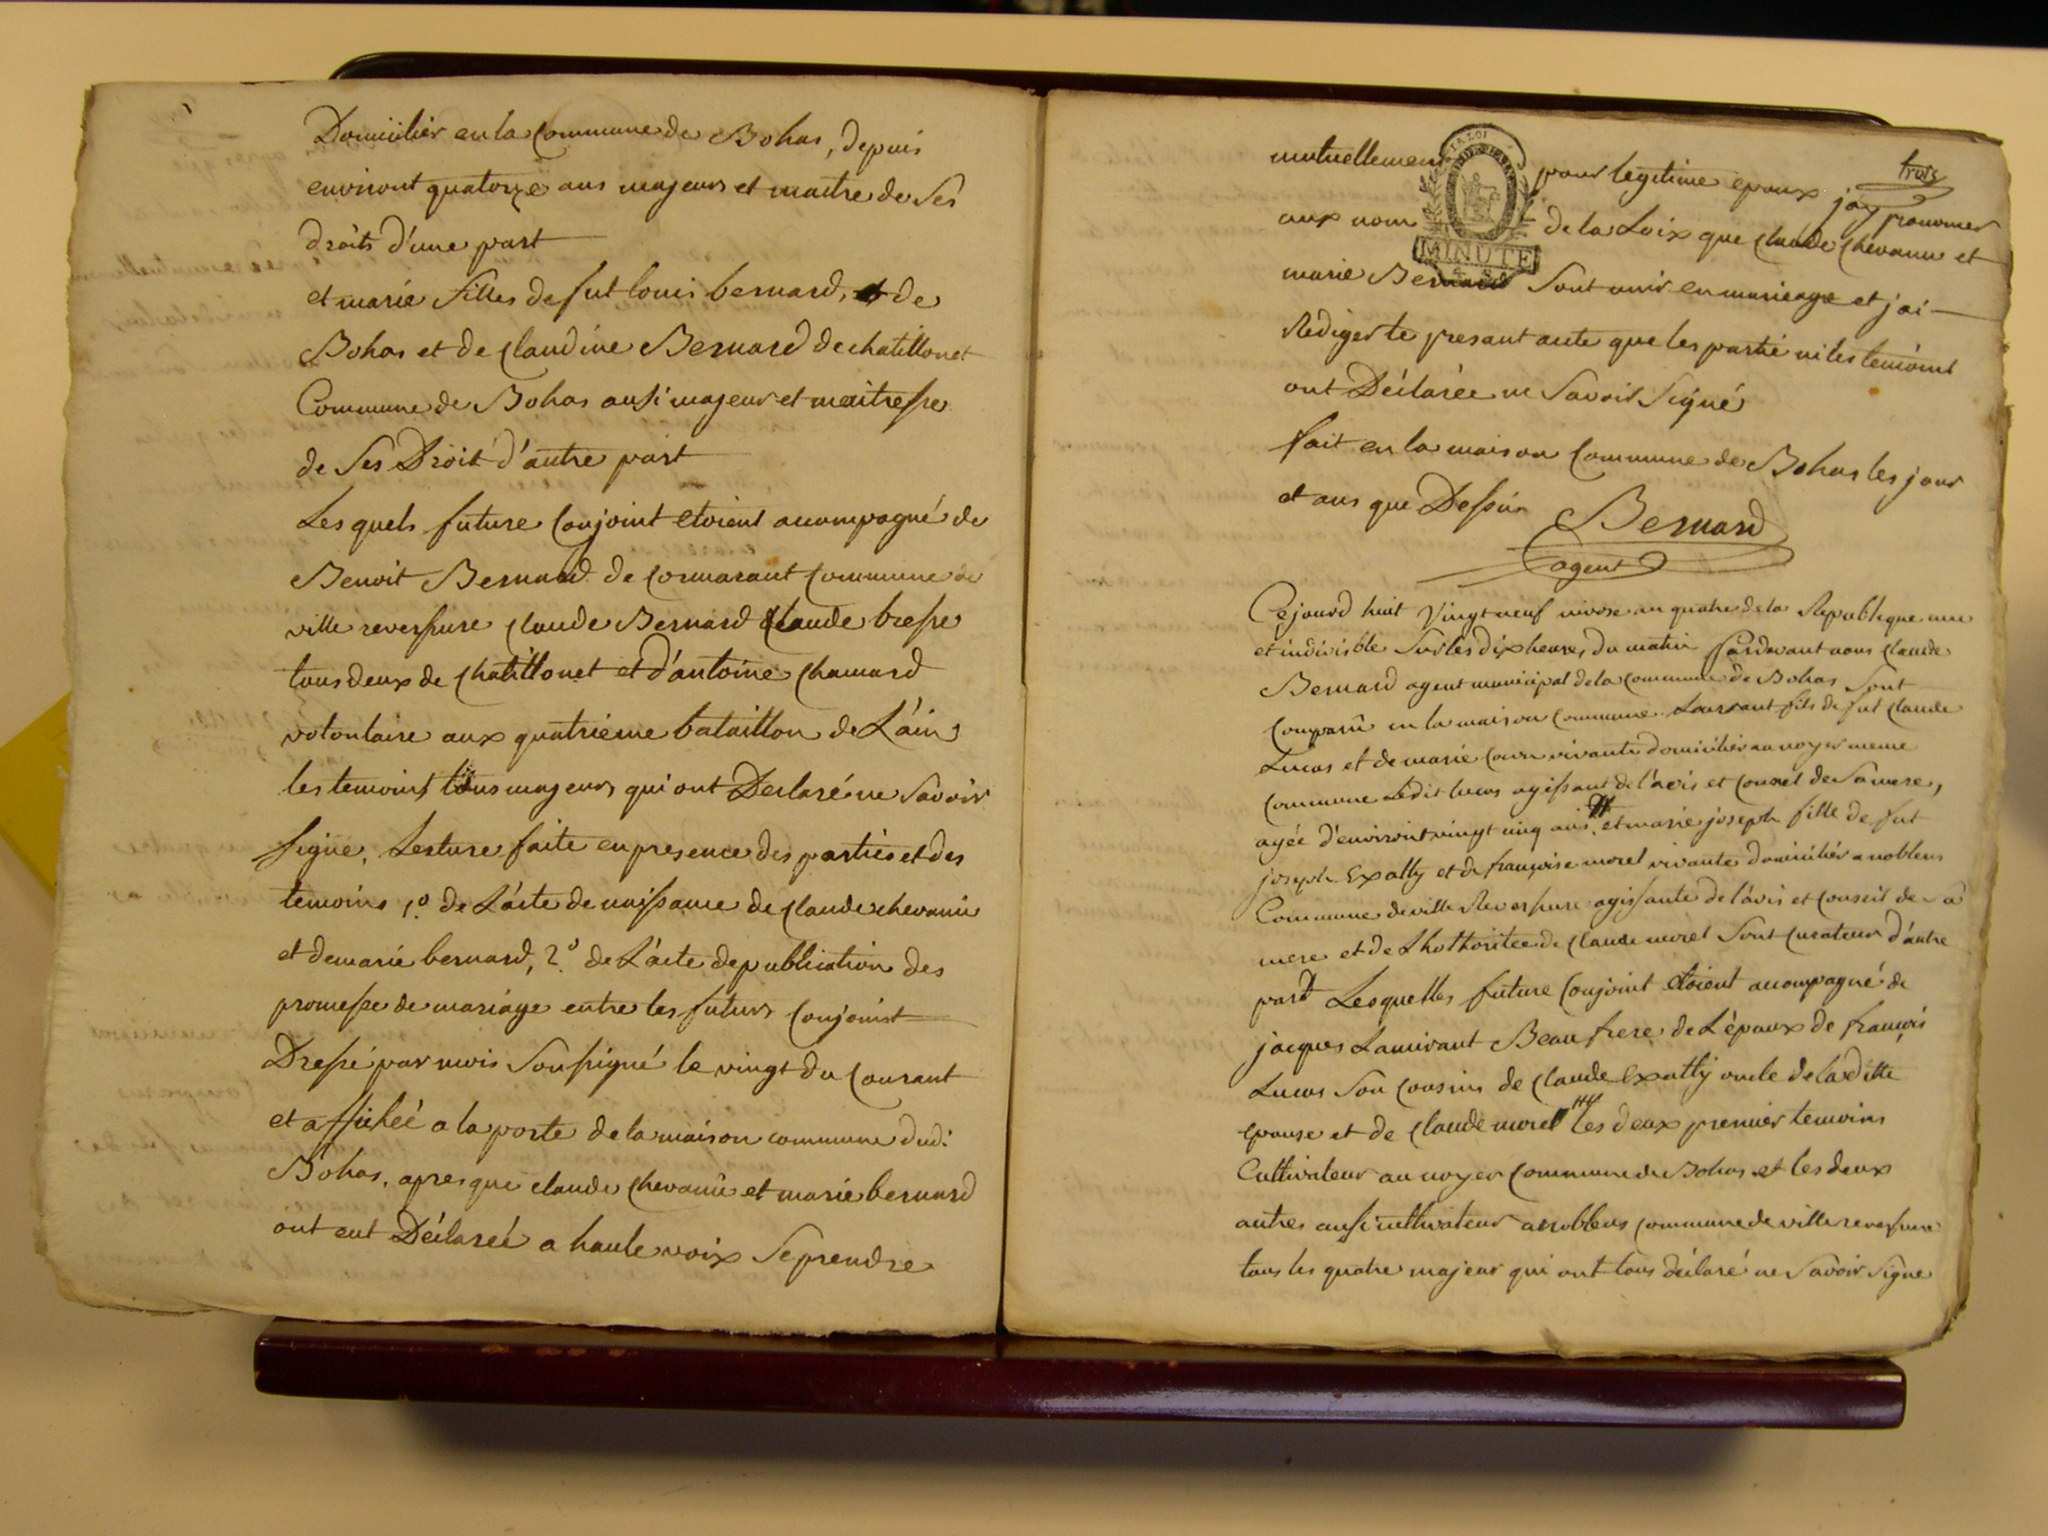 Domicilier en la Commune de Bohas, depuis
environt quatorze ans majeurs et maitre de Ses
droits d'une part
et marie filles de fut louis bernard, de
Bohas et de Claudine Bernard de chatillonet
Commune de Bohas ausi majeur et maitresse
de Ses Droit d'autre part
Lesquels future Conjoint etoient acompagné de
Benoit Bernard de Cormarant Commune de
ville reversure Claude Bernard Claude bresse
tous deux de Chatillonet et d'antoine Chamard
volontaire aux quatrieme bataillon de L'ain
les temoins tous majeurs qui ont Declaré ne Savoir
signe, Lesture faite en presence des parties et des
temoins 1º de L'acte de naissance de Claude chevanu
et de marie bernard, 2º de L'acte de publication des
promesse de mariage entre les futurs Conjoint
Dressé par mois Soussigné le vingt du Courant
et affichéé a la porte de la maison commune dudi
Bohas, apres que claude Chevanu et marie bernard
ont eut Déclareé a haute voix Se prendre
trois
mutuellement pour legitime epoux jay prononcer
LA LOI
MINUTE
aux nom de la Loix que Claude Chevanu et
marie Bernard Sont unir en marieage et jai
Rediger le presant acte que les partie ni les temoint
ont Déclarée ne Savoir Signé
fait en la maison Commune de Bohas les jour
et ans que Dessus
Bernard
agent
Cejourd huit Vingt neuf nivose an quatre de la Republique une
et indivisble Sur les dix heures du matin Pardevant nous Claude
Bernard agent municipal de la Commune de Bohas Sont
Comparû en la maison Commune Laurant fils de fut Claude
Lucas et de marie vivante domicilier au noyer meme
Commune Ledit lucas agissant de l'avis et de Sa mere,
agée d'environt vingt cinq ans et marie joseph fille de fut
joseph Exatly et de françoise morel vivante domicilier a noblens
Commune de ville Reversure agissante de l'avis et Conseil de Sa
mere et de Lhottoritee de Claude morel Sont Curateur d'autre
part Lesquelles future Conjoint etoient acompagné de
jacques Lamirant Beau frere de L'époux de françois
Lucas Son Cousins de Claude Exatly oncle de la ditte
epouse et de Claude morel les deux premier temoins
Cultivateur au noyer Commune de Bohas et les deux
autres ausi cultivateur a noblens Commune de ville reversure
tous les quatre majeur qui ont tous déclaré ne Savoir Signe